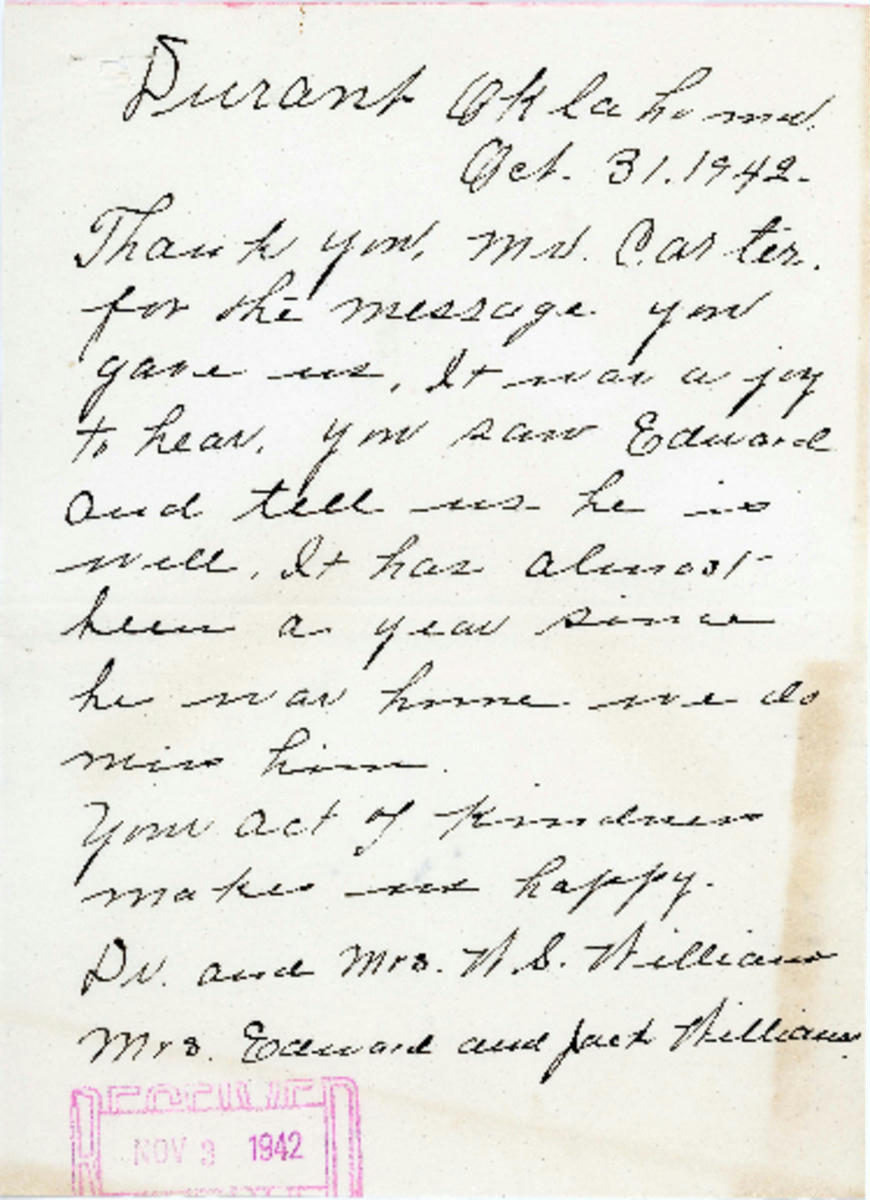 Durant Oklahoma.
Oct. 31. 1942.
Thank you, Mr. Carter.
for the message you
gave us, It was a joy
to hear, you saw Edward
and tell us he is
well, It has almost
been a year since
he was home we do
miss him.
Your act of kindness
makes us happy.
Dr. and Mrs. W. S. Williams
Mrs. Edward and Jack Williams.
RECEIVED
NOV 3 1942